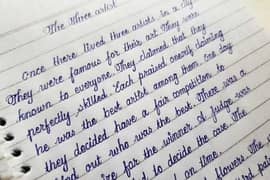 The three artist
Once there lived three artists in a city
They were famous for their art. They were
known to everyone. They claimed that they
perfectly skilled. Each praised onerly claiming
he was the best artist among them. One day
they decided have a fair competition to
out who is the best. There was a
for the winner. A judge was
to decide the case. The
on time.
flowers. The